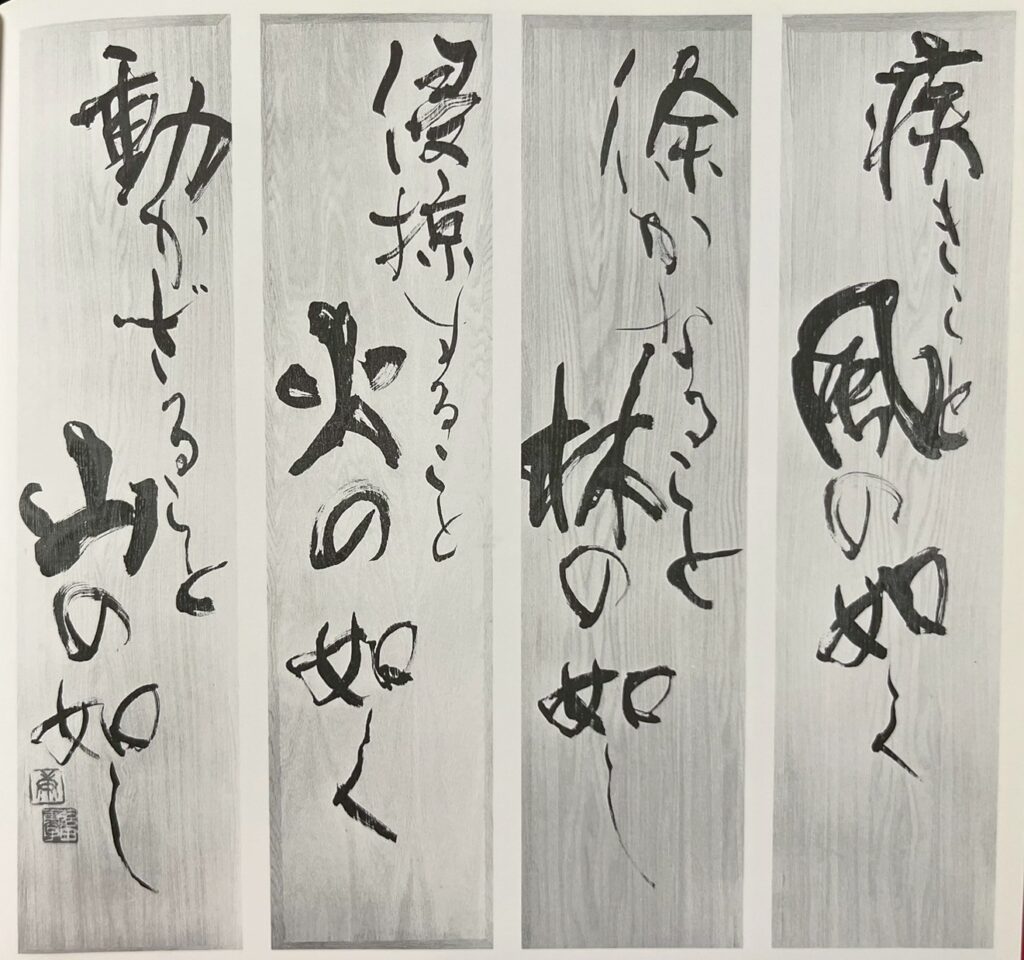 疾きこと
風の如く
徐かなること
林の如し
侵掠すること
火の如く
動かざること
山の如し